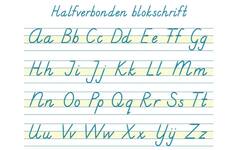 Halfverbonden blokschrift
Aa Bb Cc Dd Ee Ff Gg
Hh Ii Jj Kk Ll Mm
Nn Oo Pp Qq Rr Ss Tt
Uu Vv Ww Xx IJij Zz